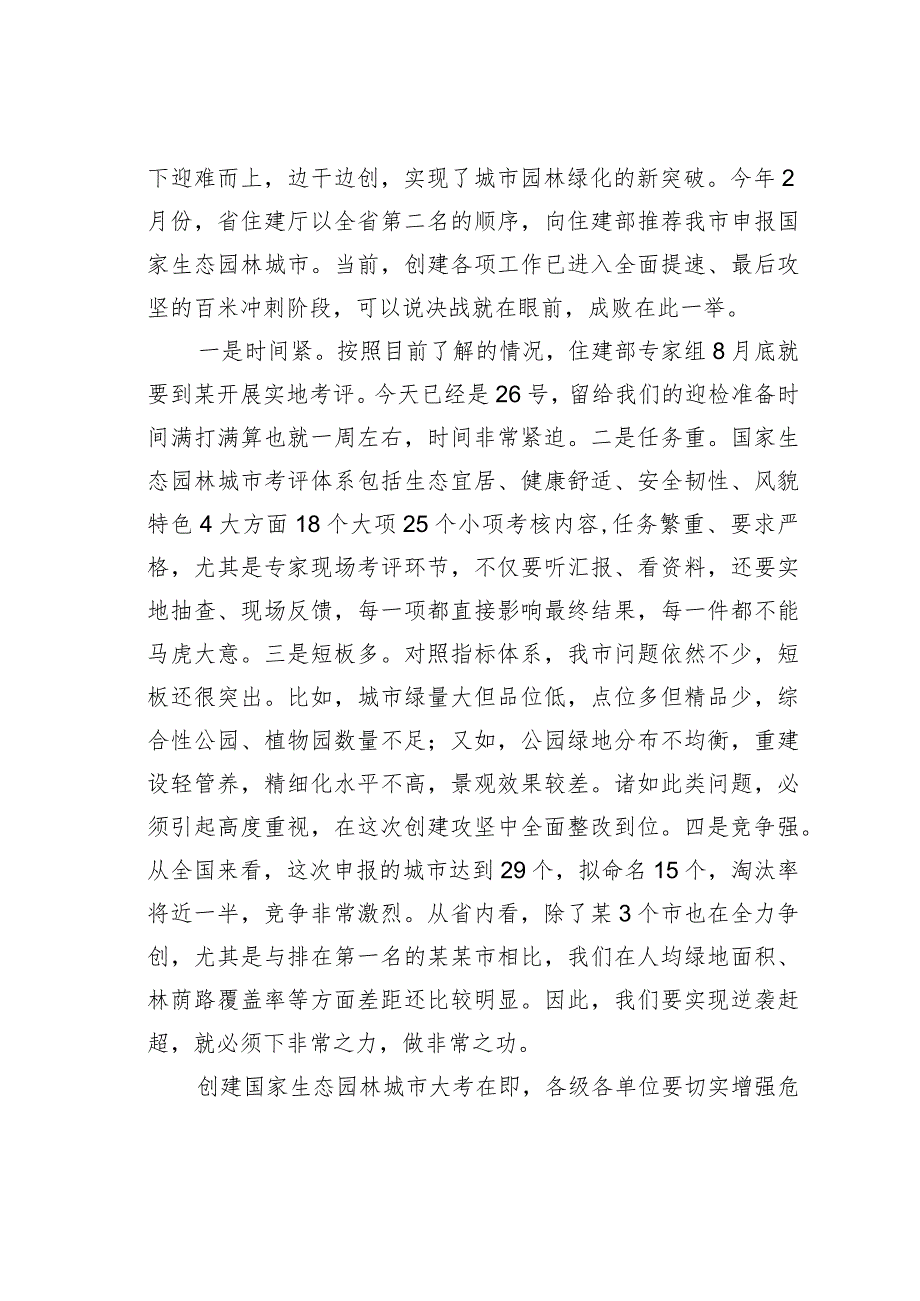 下迎难而上，边干边创，实现了城市园林绿化的新突破。今年 2
月份，省住建厅以全省第二名的顺序，向住建部推荐我市申报国
家生态园林城市。当前，创建各项工作已进入全面提速、最后攻
坚的百米冲刺阶段，可以说决战就在眼前，成败在此一举。
一是时间紧。按照目前了解的情况，住建部专家组 8 月底就
要到某开展实地考评。今天已经是 26 号，留给我们的迎检准备时
间满打满算也就一周左右，时间非常紧迫。二是任务重。国家生
态园林城市考评体系包括生态宜居、健康舒适、安全韧性、风貌
特色 4 大方面 18 个大项 25 个小项考核内容,任务繁重、要求严
格，尤其是专家现场考评环节，不仅要听汇报、看资料，还要实
地抽查、现场反馈，每一项都直接影响最终结果，每一件都不能
马虎大意。三是短板多。对照指标体系，我市问题依然不少，短
板还很突出。比如，城市绿量大但品位低，点位多但精品少，综
合性公园、植物园数量不足；又如，公园绿地分布不均衡，重建
设轻管养，精细化水平不高，景观效果较差。诸如此类问题，必
须引起高度重视，在这次创建攻坚中全面整改到位。四是竞争强。
从全国来看，这次申报的城市达到 29 个，拟命名 15 个，淘汰率
将近一半，竞争非常激烈。从省内看，除了某 3 个市也在全力争
创，尤其是与排在第一名的某某市相比，我们在人均绿地面积、
林荫路覆盖率等方面差距还比较明显。因此，我们要实现逆袭赶
超，就必须下非常之力，做非常之功。
创建国家生态园林城市大考在即，各级各单位要切实增强危